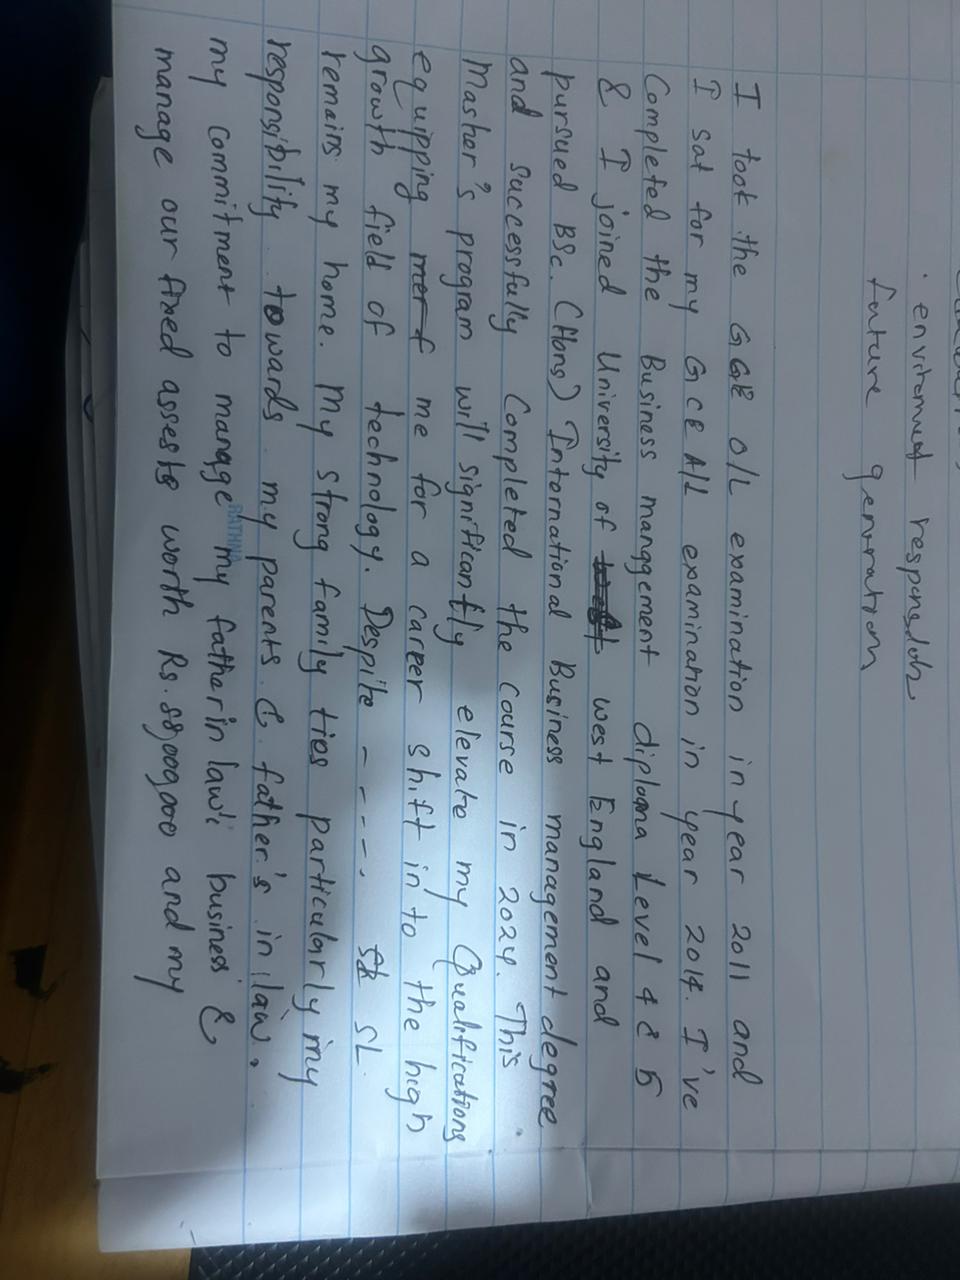 . environmet
future generation
I took the GCE O/L examination in year 2011 and
I sat for my GCE A/L examination in year 2014. I've
Completed the Business manggement diploma Level 4 & 5
& I joined University of west England and
pursued BSc. (Hons) Intornational Business management degree
and successfully Completed the course in 2024. This
Masher's program will significantly elevate my Qualifications
equipping me for a career shift in to the high
growth field of technology. Despite - - - - - SL
remains my home. My strong family ties particularly my
responsibility towards my parents & father's in law.
my commitment to manage my father in law's business &
RATHNA
manage our fixed assests worth Rs. and my